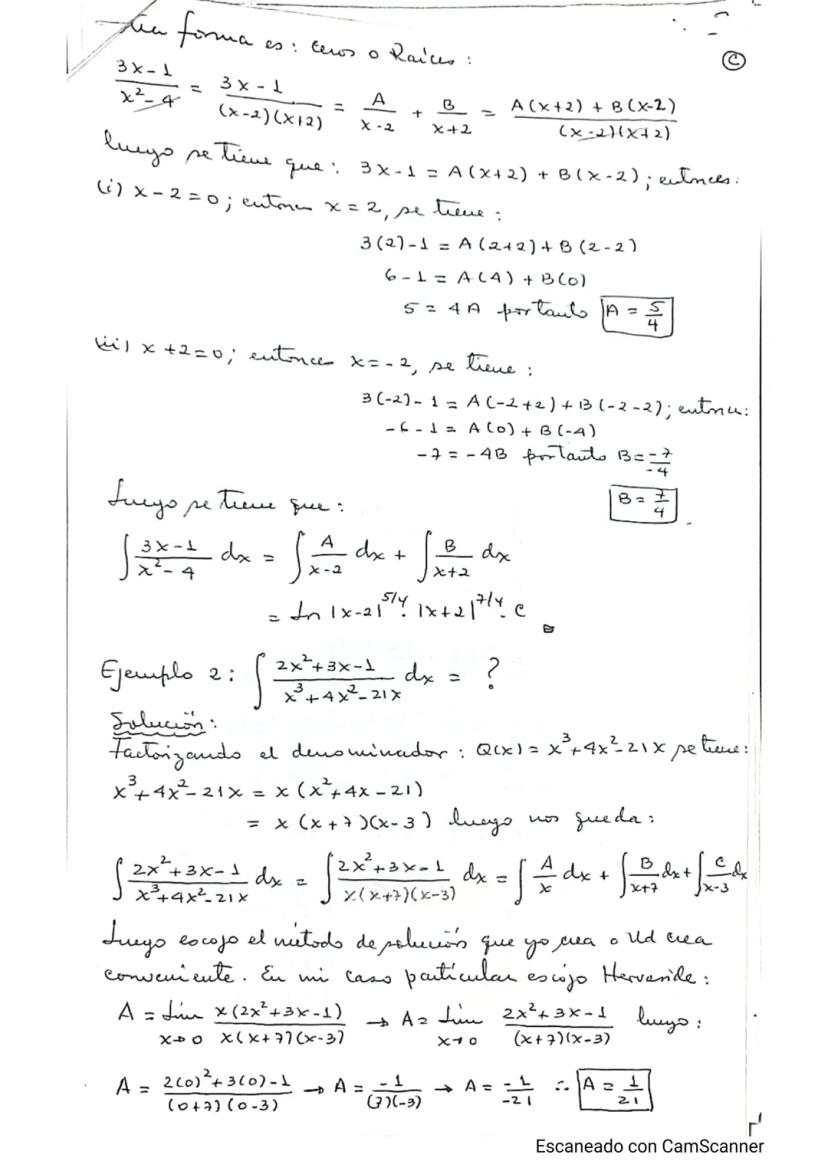 3ra forma es: Ceros o Raíces:
©
3x-1/x²-4 = 3x-1/(x-2)(x+2) = A/x-2 + B/x+2 = A(x+2)+B(x-2)/(x-2)(x+2)
luego se tiene que: 3x-1 = A(x+2) + B(x-2); entonces:
(i) x-2=0; entonces x=2, se tiene:
3(2)-1 = A(2+2)+B(2-2)
6-1 = A(4) + B(0)
5 = 4A por tanto A = 5/4
(ii) x+2=0; entonces x=-2, se tiene:
3(-2)-1 = A(-2+2)+B(-2-2); entonces:
-6-1 = A(0)+B(-4)
-7 = -4B por tanto B = -7/-4
Luego se tiene que: B = 7/4
∫ 3x-1/x²-4 dx = ∫ A/x-2 dx + ∫ B/x+2 dx
= Ln |x-2|^5/4 · |x+2|^7/4 · C
Ejemplo 2: ∫ 2x²+3x-1/x³+4x²-21x dx = ?
Solución:
Factorizando el denominador: Q(x) = x³+4x²-21x se tiene:
x³+4x²-21x = x(x²+4x-21)
= x(x+7)(x-3) luego nos queda:
∫ 2x²+3x-1/x³+4x²-21x dx = ∫ 2x²+3x-1/x(x+7)(x-3) dx = ∫ A/x dx + ∫ B/x+7 dx + ∫ C/x-3 dx
Luego escojo el método de solución que yo crea o Ud crea
conveniente. En mi caso particular escojo Hervaside:
A = Lim x→0 x(2x²+3x-1)/x(x+7)(x-3) → A = Lim x→0 2x²+3x-1/(x+7)(x-3) luego:
A = 2(0)²+3(0)-1/(0+7)(0-3) → A = -1/(7)(-3) → A = -1/-21 ∴ A = 1/21
Escaneado con CamScanner